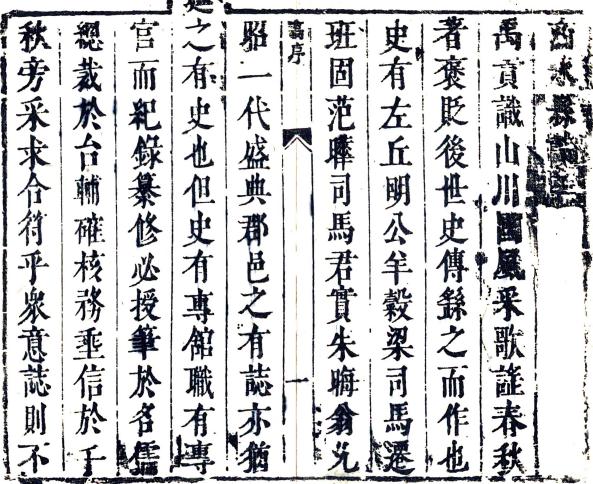 水縣
禹貢識山川國風采歌謠春秋
著褒貶後世史傳繇之而作也
史有左丘明公羊穀梁司馬遷
班固范曄司馬君實朱晦翁允
高序
一
昭一代盛典郡邑之有誌亦猶
廷之有史也但史有專舘職有專
官而紀錄纂修必授筆於名儒
總裁於台輔確核務垂信於千
秋旁采求合符乎衆意誌則不